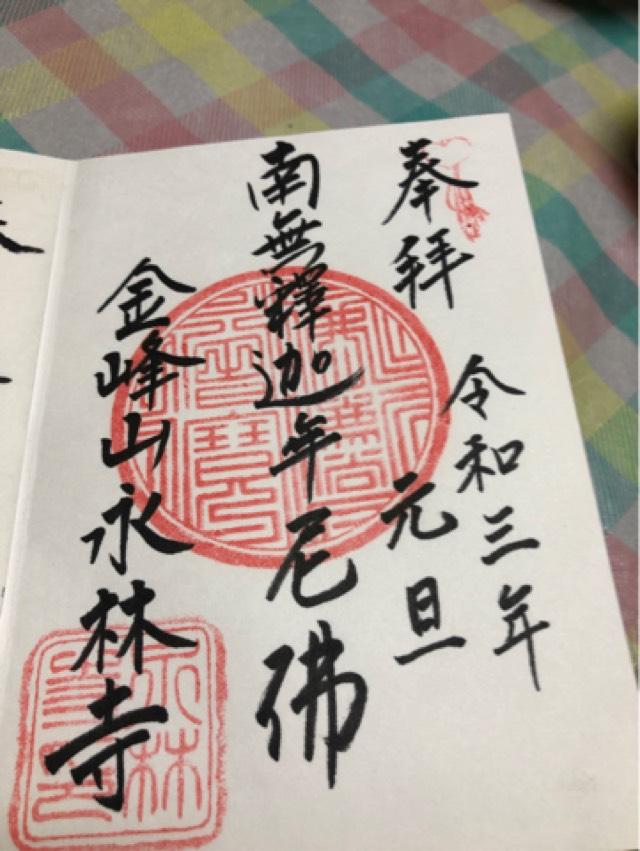 奉拝
令和三年
元旦
南無釋迦牟尼佛
金峰山永林寺